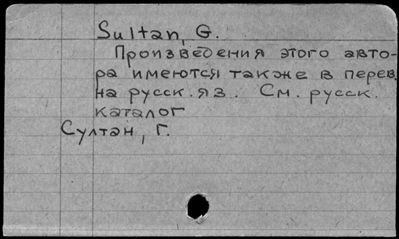 Sultan, G.
Произведения этого авто-
ра имеются также в перев.
на русск. яз. См. русск.
каталог
Султан, Г.